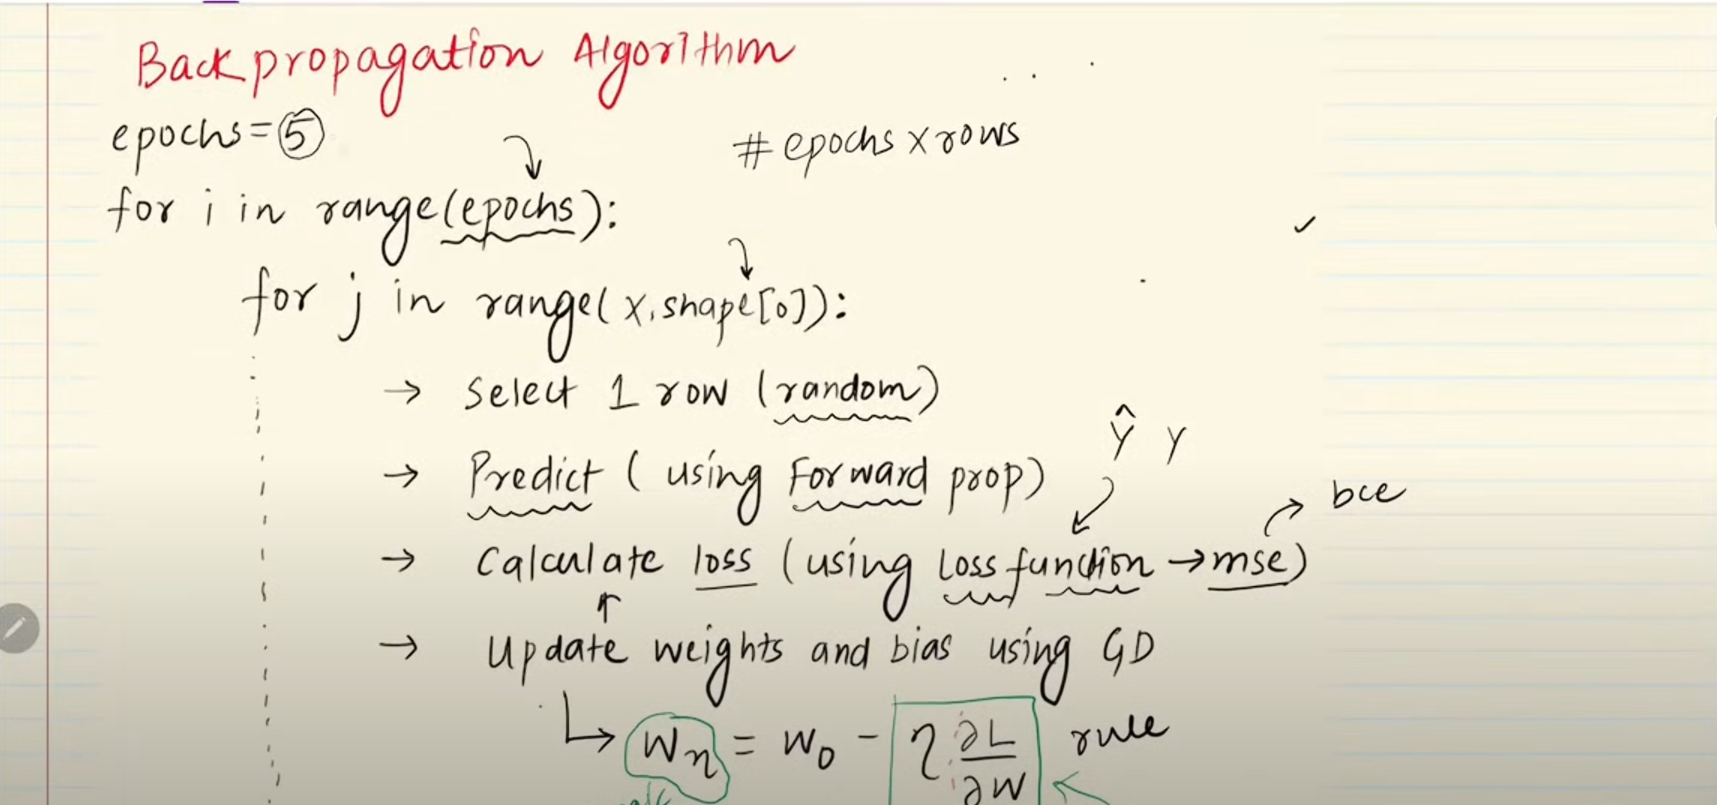 Backpropagation Algorithm
epochs = 5
# epochs x rows
for i in range(epochs):
for j in range(X.shape[0]):
→ Select 1 row (random)
ŷ y
→ Predict (using forward prop)
bce
→ Calculate loss (using loss function → mse)
→ Update weights and bias using GD
Wn = W0 - η ∂L/∂W rule